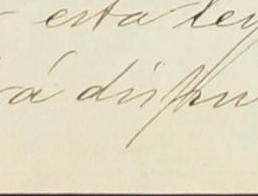 esta ley
á dispu